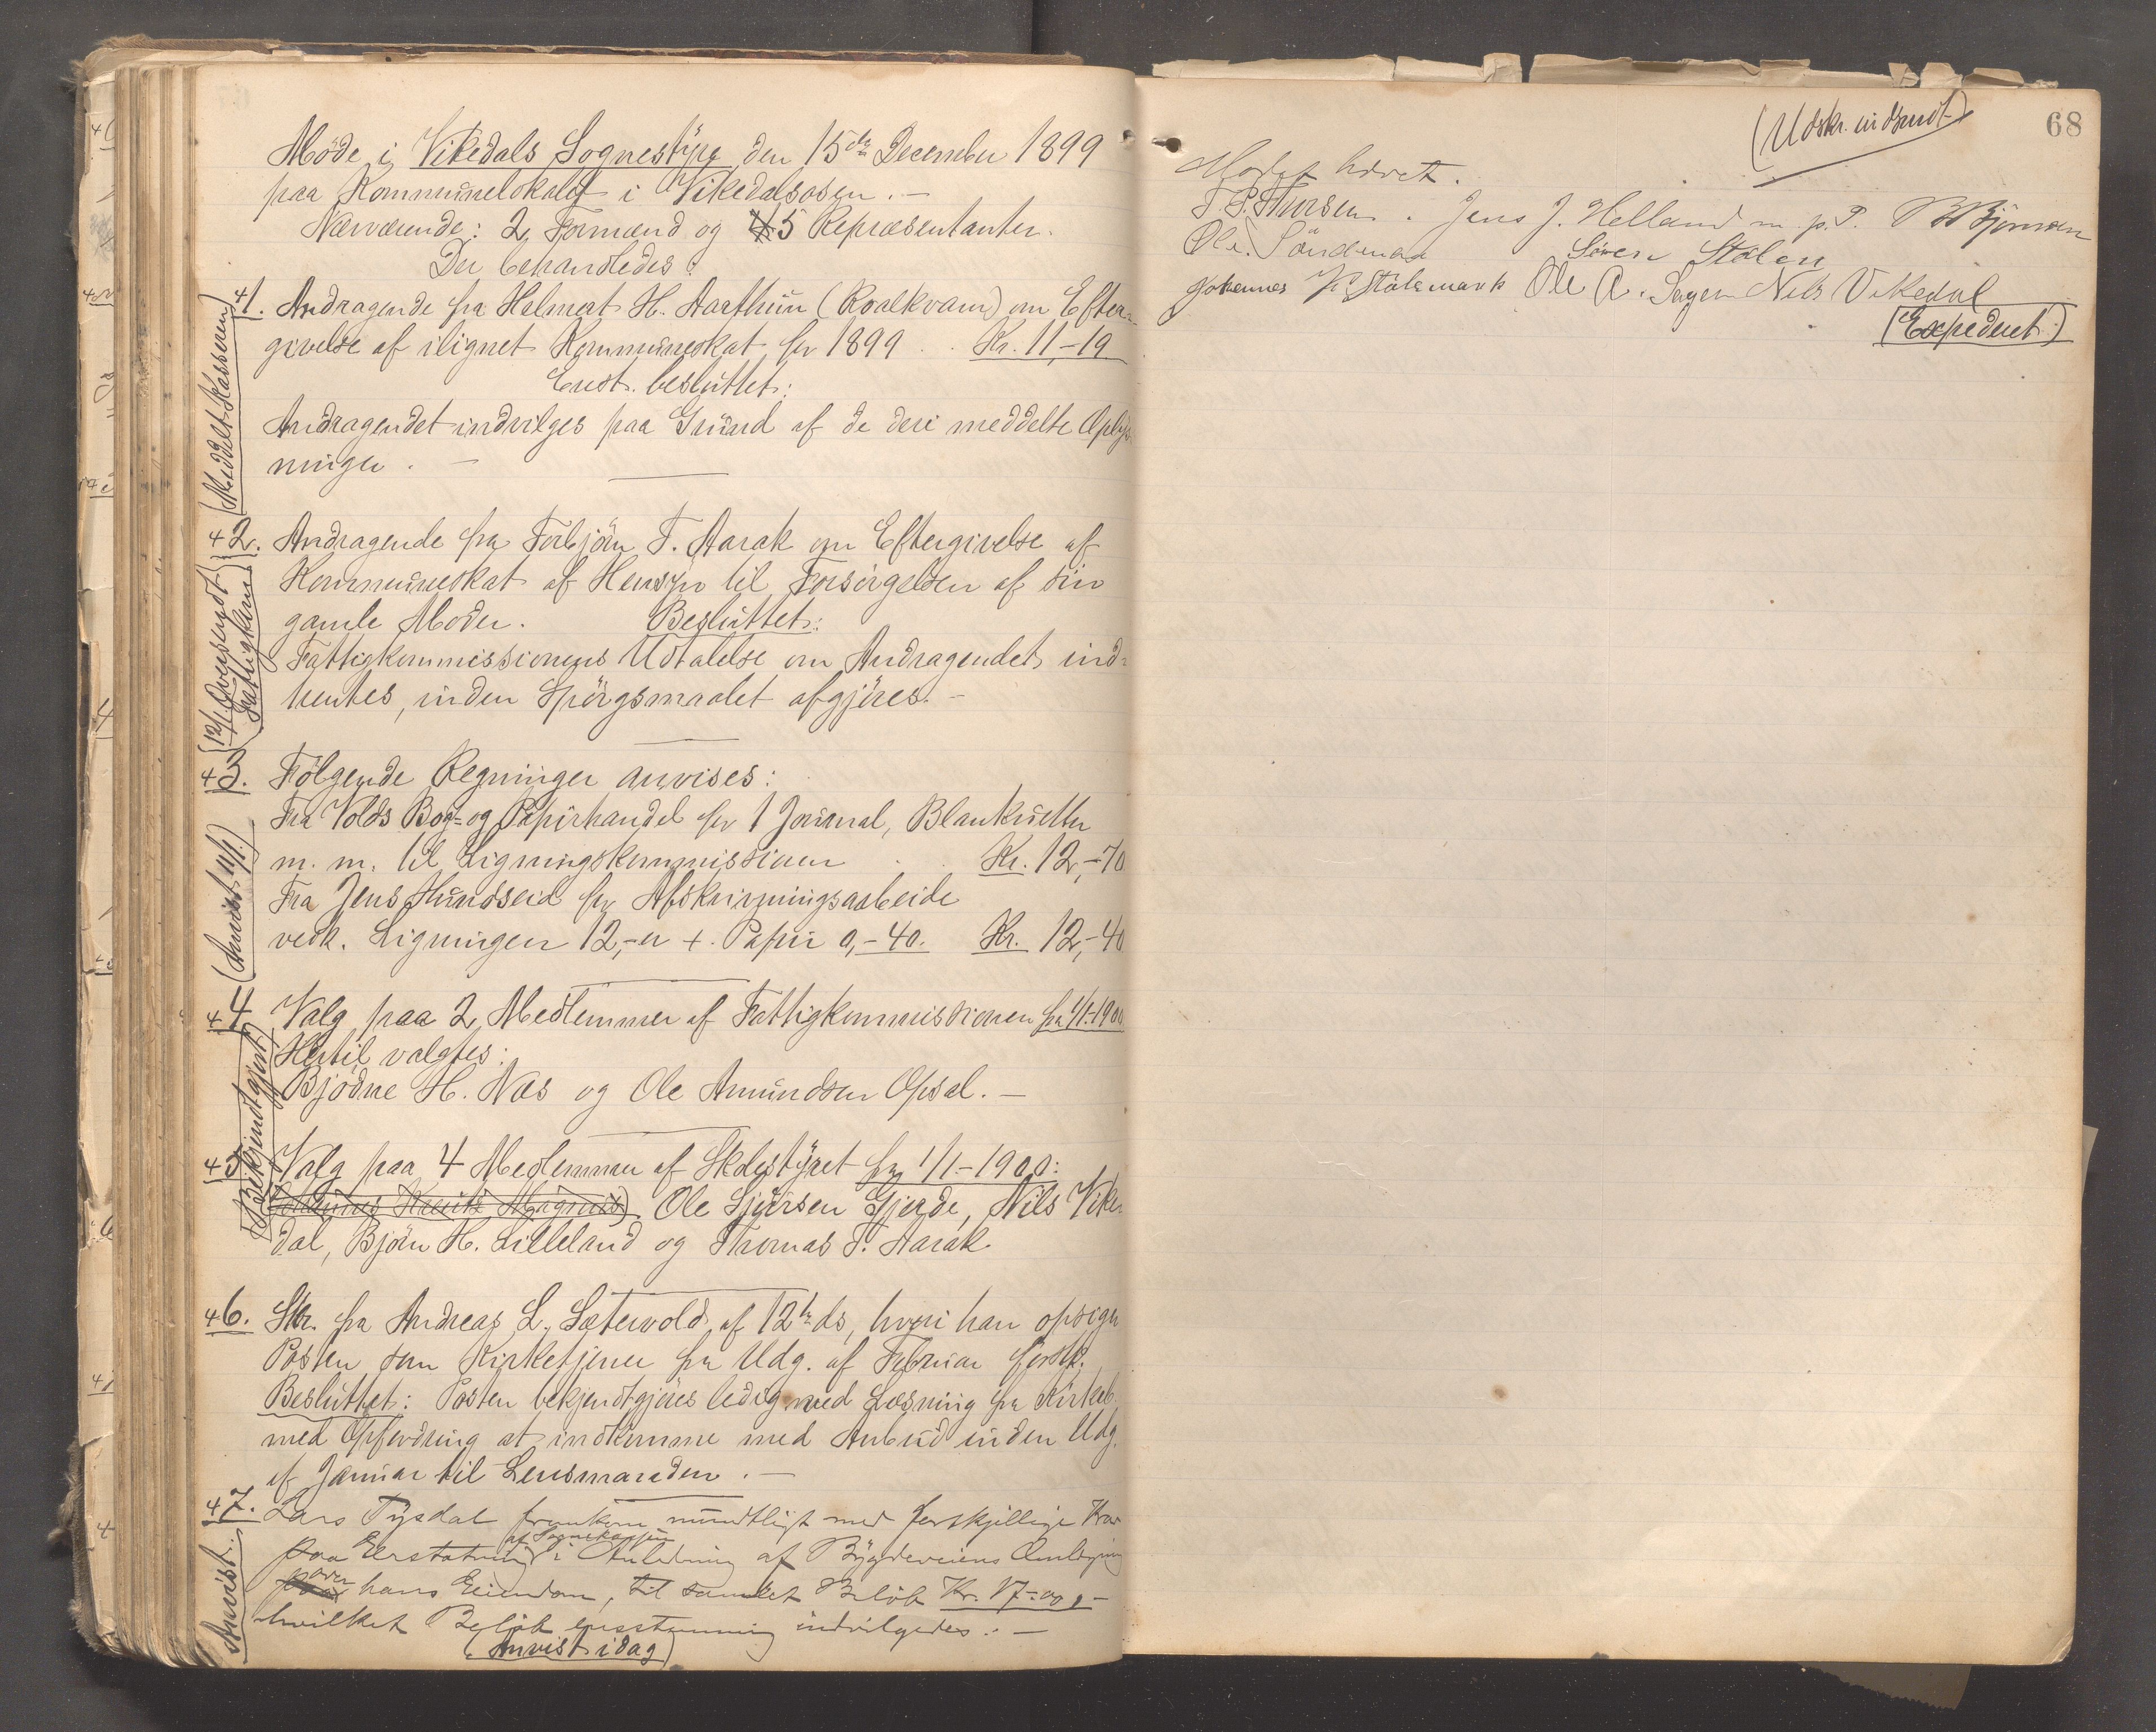 Möde i Vikedals Sognestyre den 15de December 1899
paa Kommunelokalet i Vikedalsosen. —
Nærværende: 2 Formænd og 5 Repræsentanter.
Der behandledes:
41. Andragende fra Helmert H. Aarthun (Roalkvam) om Efter-
givelse af ilignet Kommuneskat for 1899 Kr. 11,-19
Enst. besluttet:
Andragendet indvilges paa Grund af de deri meddelte Oplys-
ninger. —
(Meddelt Kassereren)
42. Andragende fra Torbjörn T. Aarak om Eftergivelse af
Kommuneskat af Hensyn til Forsörgelsen af sin
gamle Moder. Besluttet:
Fattigkommissionens Udtalelse om Andragendet ind-
hentes, inden Spörgsmaalet afgjöres. —
(12/1 Oversendt
Fattigkom.)
43. Fölgende Regninger anvises:
Fra Volds Bog- og Papirhandel for 1 Journal, Blanketter
m. m. til Ligningskommissionen Kr. 12,-70
Fra Jens Hundseid for Afskrivningsarbeide
vedk. Ligningen 12,-„ + Papir 0,-40. Kr. 12,-40
(Anvist 11/1.)
44 Valg paa 2 Medlemmer af Fattigkommissionen fra 1/1-1900
Hertil valgtes:
Bjödne H. Næs og Ole Amundsen Opsal. —
45 Valg paa 4 Medlemmer af Skolestyret fra 1/1-1900:
Ole Sjursen Gjerde, Nils Vike-
dal, Björn H. Lilleland og Thomas T. Aarak.
(Bekjendtgjort)
46. Skr. fra Andreas L. Sætervold af 12te ds, hvori han opsiger
Posten som Kirketjener fra Udg. af Februar förstk.
Besluttet: Posten bekjendtgjöres ledig ved Læsning fra Kirkeb.
med Opfordring at indkomme med Anbud inden Udg.
af Januar til Lensmanden. —
47. Lars Tysdal fremkom mundtligt med forskjellige Krav
paa Erstatning af Sognekassen i Anledning af Bygdeveiens Omlægning
over hans Eiendom, til samlet Belöb Kr. 17-00, —
hvilket Belöb enstemmig indvilgedes. —
(Anvist idag)
Anvist.
68
(Udskr. indsendt)
Mödet hævet.
Jens J. Helland m. p. P. B Björnsen
Ole Söndenaa Sören Stölen
Johannes K. Stölsmark Ole A. Nils Vikedal
(Expederet.)